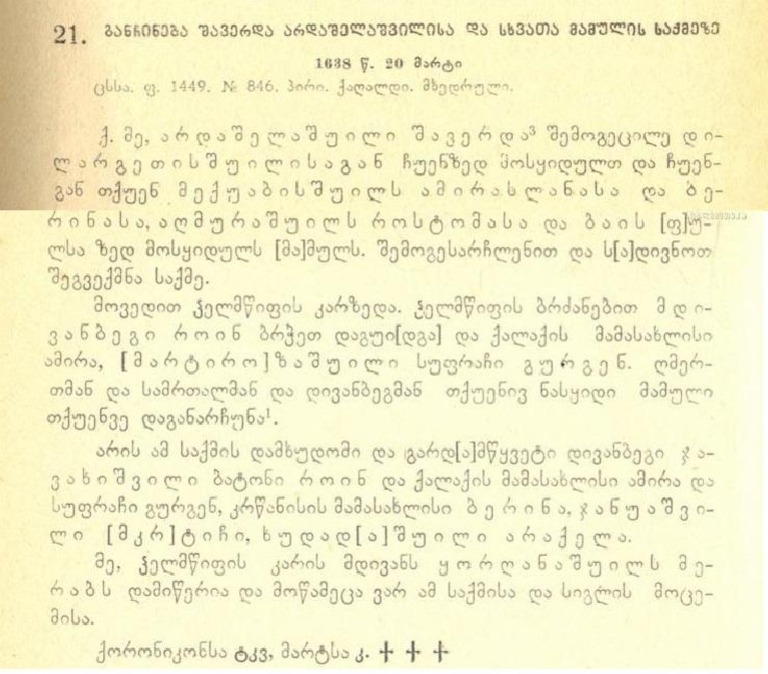 21. ᲒᲐᲜᲩᲘᲜᲔᲑᲐ ᲨᲐᲕᲔᲠᲓᲐ ᲐᲠᲓᲐᲨᲔᲚᲐᲨᲕᲘᲚᲘᲡᲐ ᲓᲐ ᲡᲮᲕᲐᲗᲐ ᲛᲐᲛᲣᲚᲘᲡ ᲡᲐᲥᲛᲔᲖᲔ
1638 წ. 20 მარტი
ცსსა. ფ. 1449. № 846. პირი. ქაღალდი. მხედრული.
ქ. მე, არდაშელაშუილი შავერდა³ შემოგეცილე დი-
ლარგეთისშუილისაგან ჩუენზედ მოსყიდულთ და ჩუენ-
გან თქუენ მექუაბისშუილს ამირასლანასა და ბე-
რინასა, აღმურაშუილს როსტომასა და ბაის [ფ]უ-
ლსა ზედ მოსყიდულს [მა]მულს. შემოგესარჩლენით და ს[ა]დივნოთ
შეგვექმნა საქმე.
მოვედით ჴელმწიფის კარზედა. ჴელმწიფის ბრძანებით მდი-
ვანბეგი როინ ბრჭეთ დაგუი[დგა] და ქალაქის მამასახლისი
ამირა, [მარტირო]ზაშუილი სუფრაჩი გურგენ. ღმერ-
თმან და სამრთალმან და დივანბეგმან თქუენივ ნასყიდი მამული
თქუენვე დაგანარჩუნა¹.
არის ამ საქმის დამხუდომი და გარდ[ა]მწყვეტი დივანბეგი ჯა-
ვახიშვილი ბატონი როინ და ქალაქის მამასახლისი ამირა და
სუფრაჩი გურგენ, კრწანისის მამასახლისი ბერინა, ჯანუაშვი-
ლი [მკრ]ტიჩი, ხუდად[ა]შუილი არაქელა.
მე, ჴელმწიფის კარის მდივანს ყორღანაშუილს მე-
რაბს დამიწერია და მოწამეცა ვარ ამ საქმისა და სიგლის მოცე-
მისა.
ქორონიკონსა ტკვ, მარტსა კ. ✝ ✝ ✝